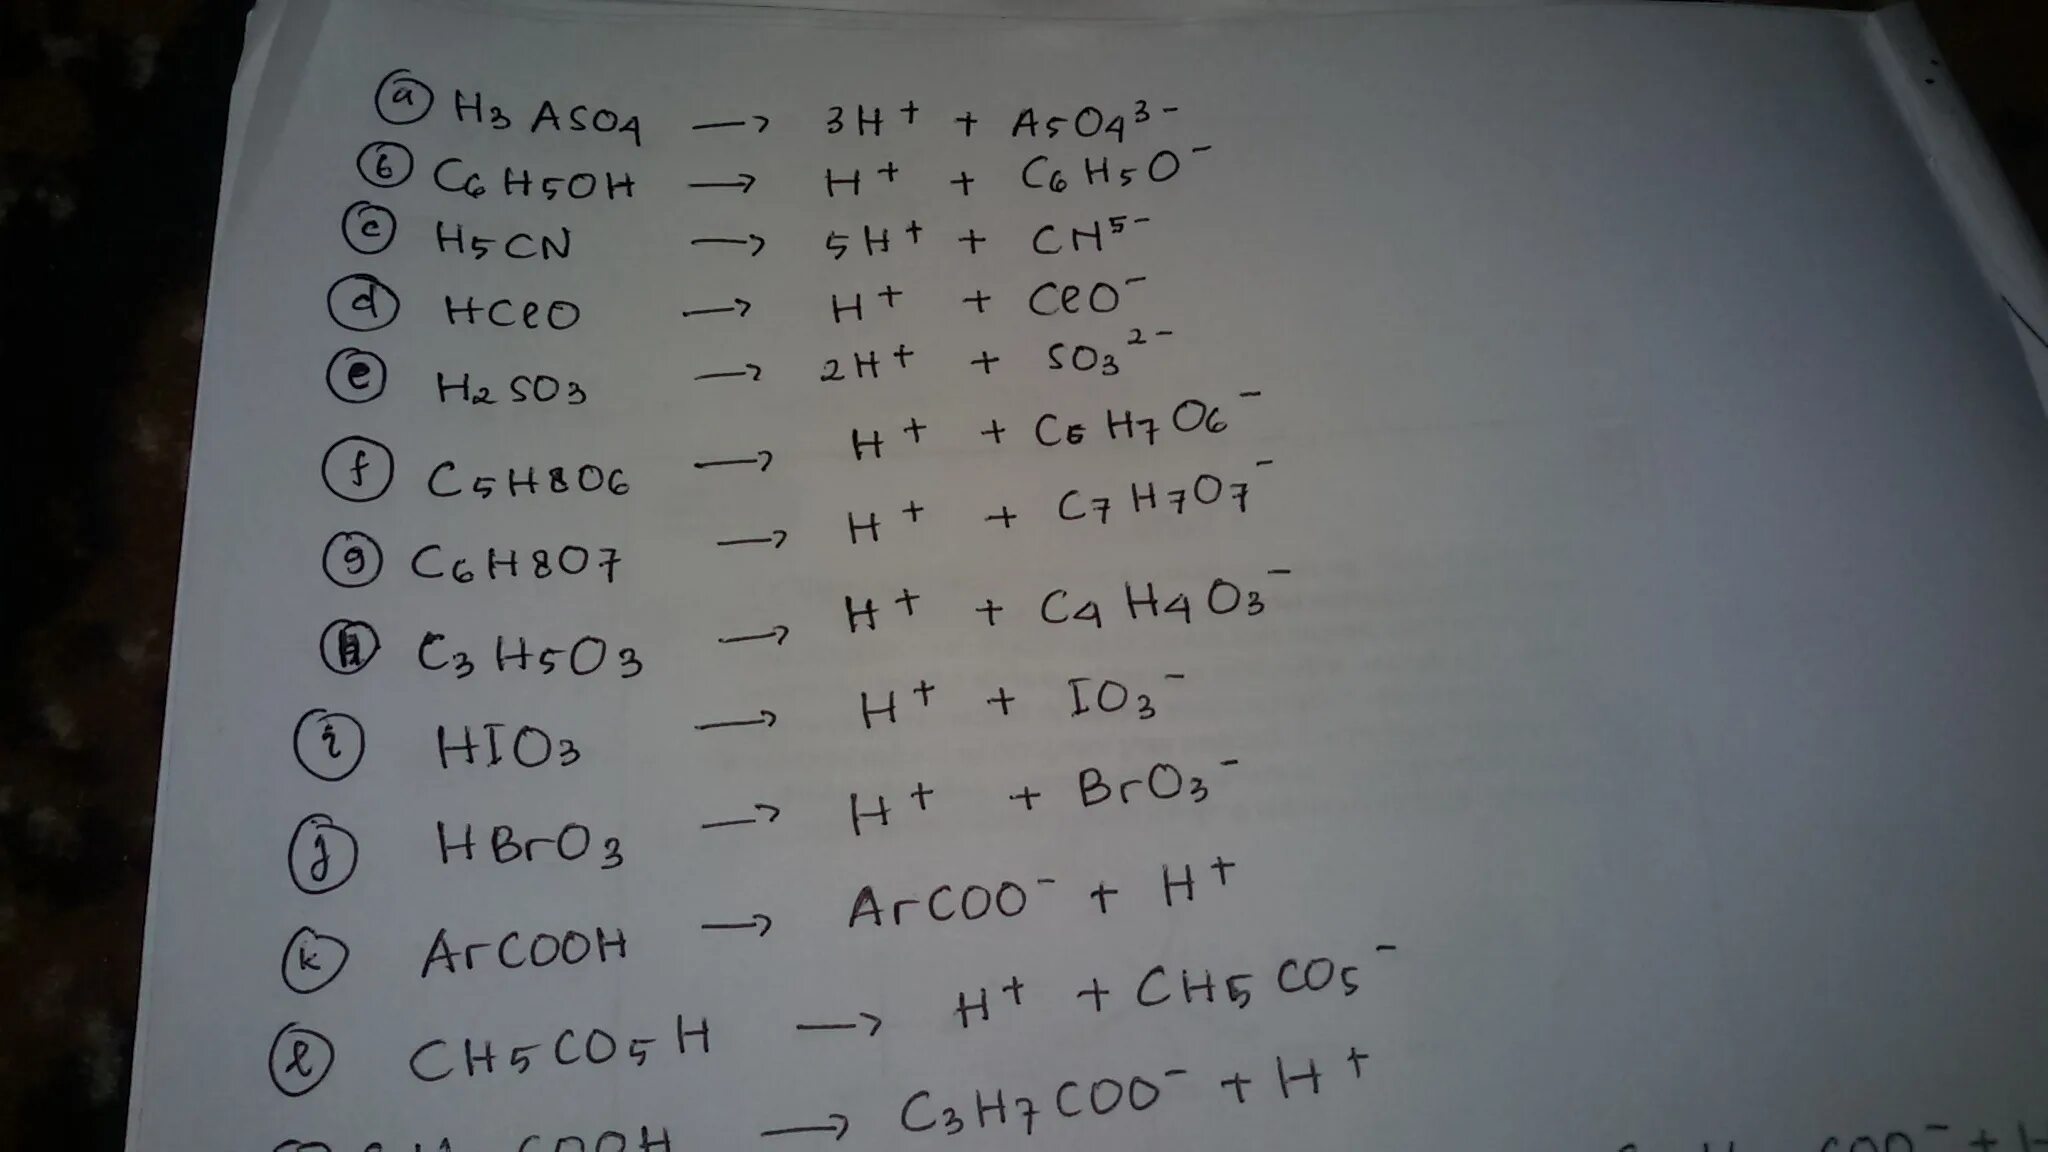 (a) H3 AsO4 → 3H+ + AsO4 3-
(b) C6H5OH → H+ + C6H5O-
(c) H5CN → 5H+ + CN5-
(d) HClO → H+ + ClO-
(e) H2SO3 → 2H+ + SO3 2-
(f) C5H8O6 → H+ + C5H7O6-
(g) C6H8O7 → H+ + C7H7O7-
(h) C3H5O3 → H+ + C4H4O3-
(i) HIO3 → H+ + IO3-
(j) HBrO3 → H+ + BrO3-
(k) ArCOOH → ArCOO- + H+
(l) CH5CO5H → H+ + CH5CO5-
COOH → C3H7COO- + H+
COO- +